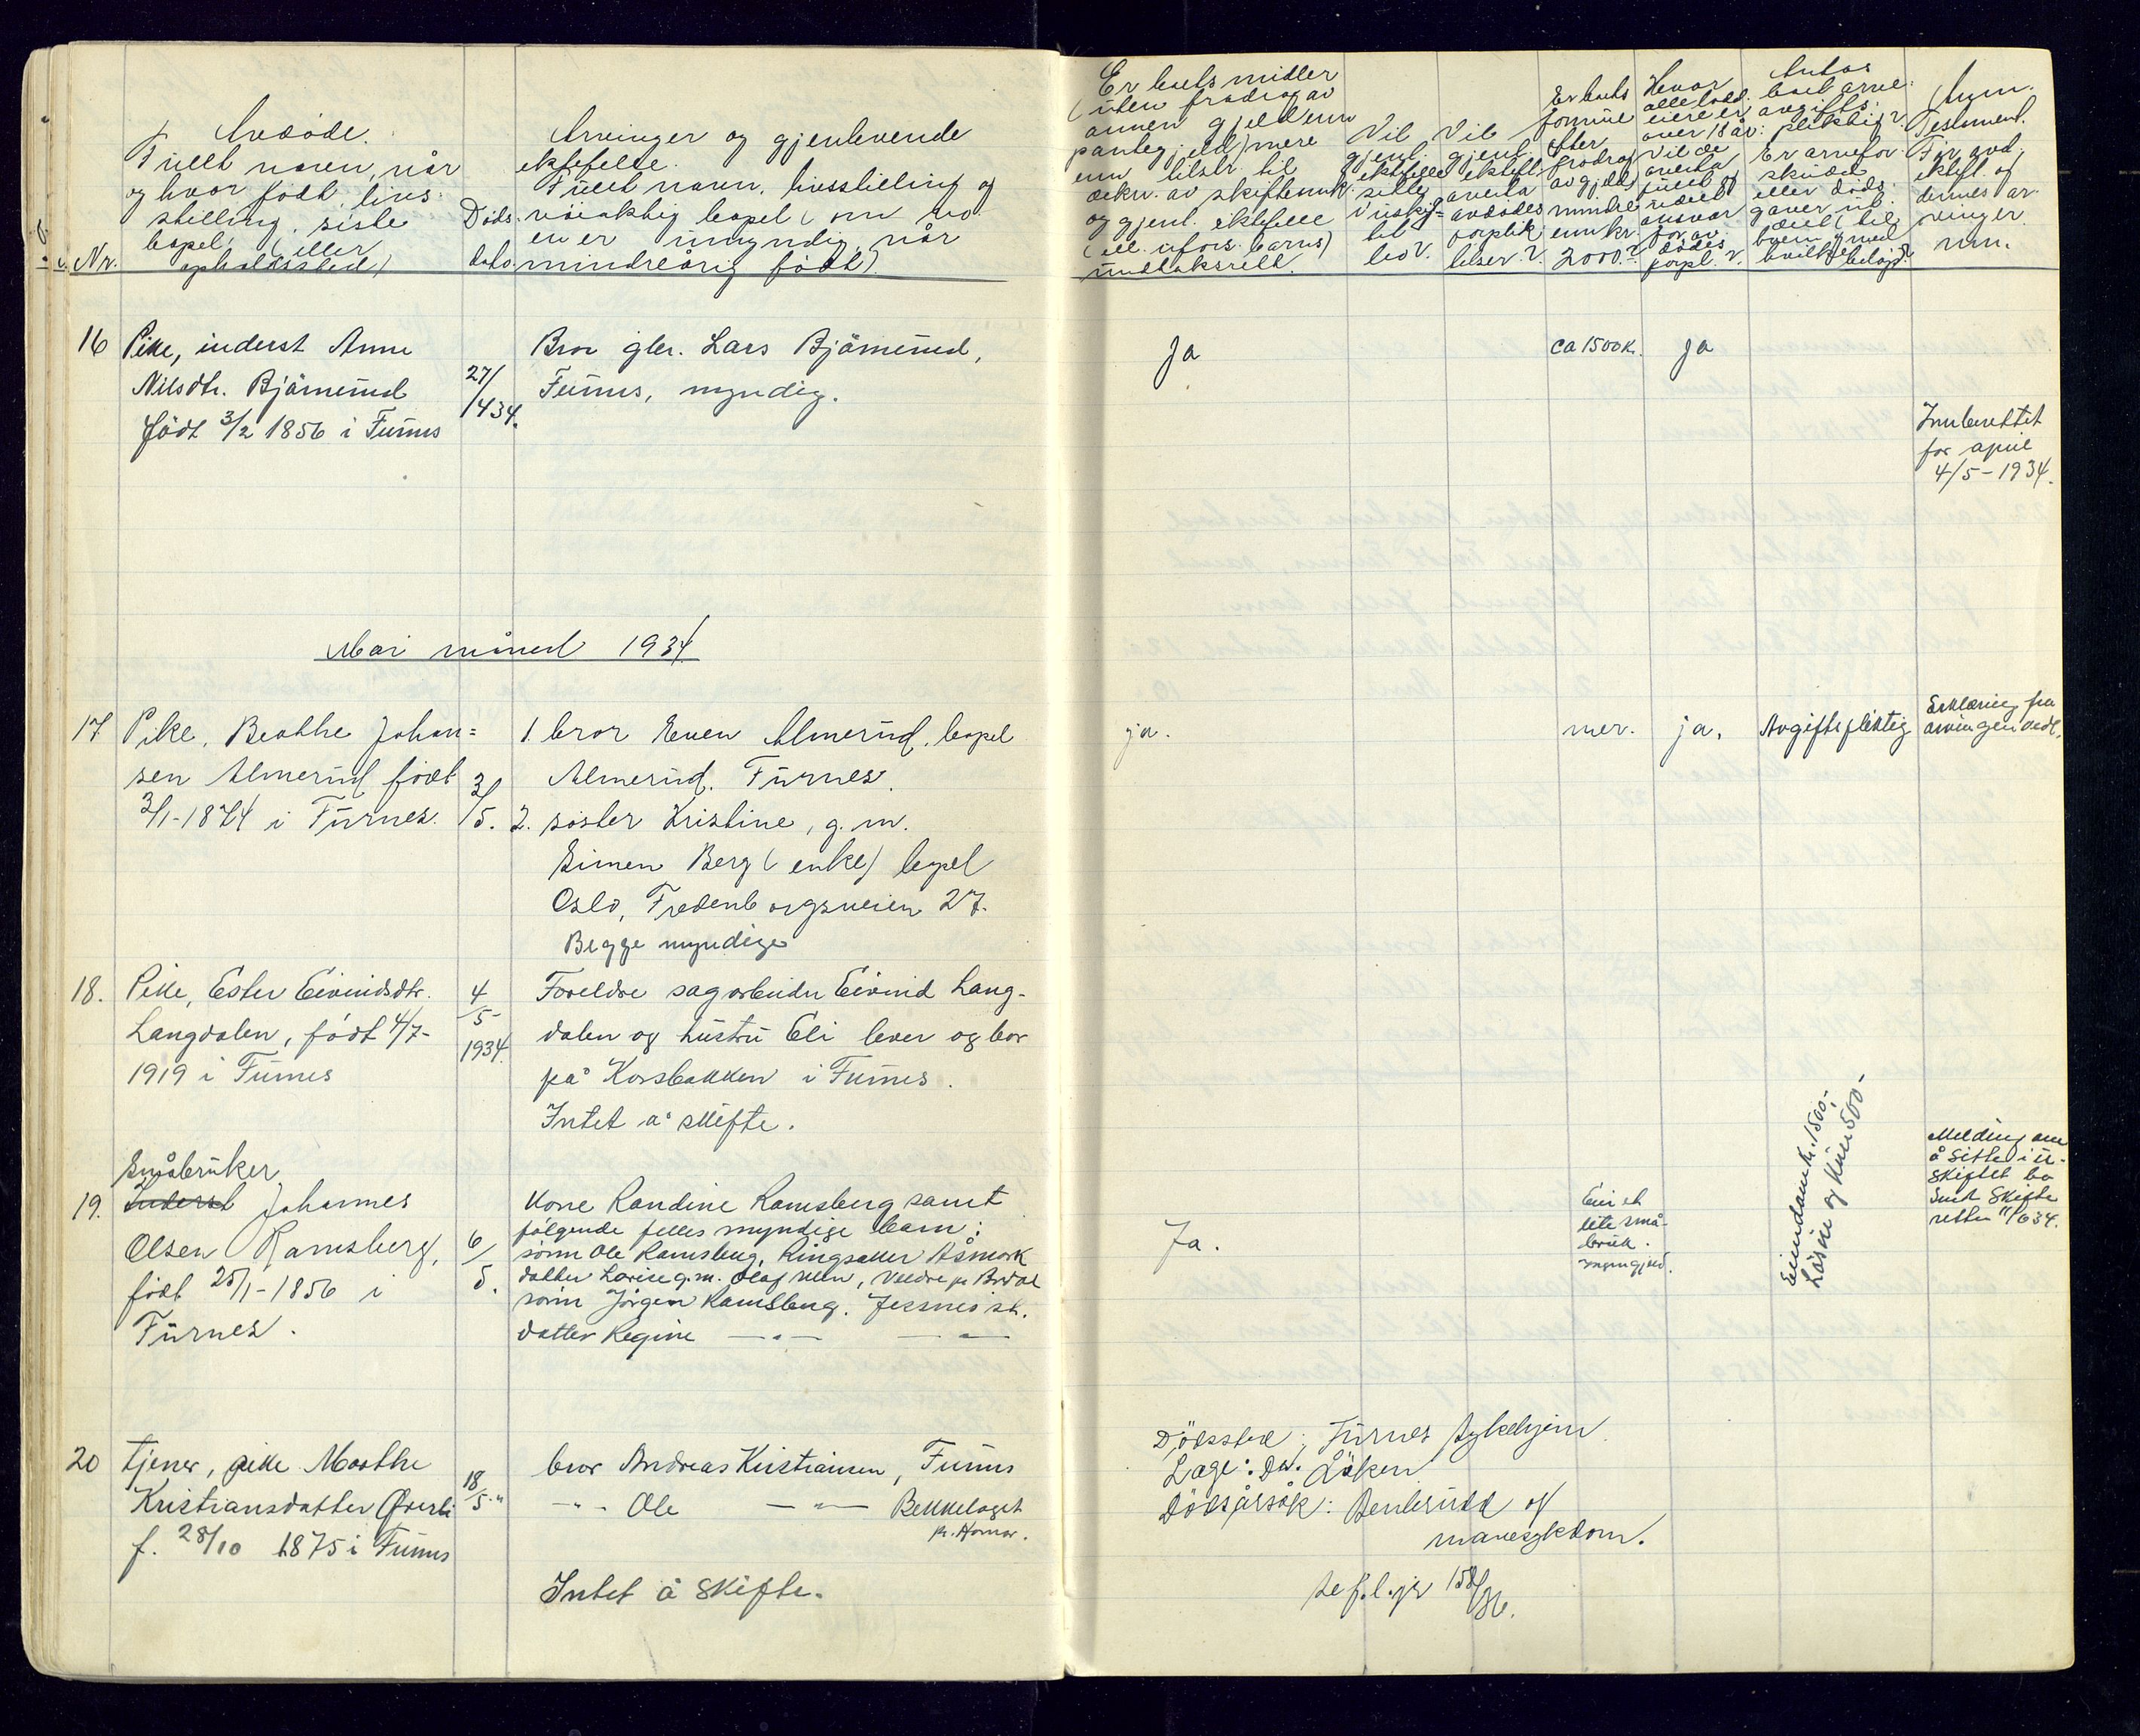 Avdöde.
Fullt navn, når
og hvor född, livs-
stilling, siste
bopel, (eller
opholdssted)
Nr.
Döds-
dato.
Arvinger og gjenlevende
ektefelle.
Fullt navn, livsstilling og
nöiaktig bopel (om no-
en er umyndig, når
mindreårig född).
Er boets midler
(uten fradrag av
annen gjeld enn
pantegjeld) mere
enn tilstr. til
dekn. av skifteomk.
og gjenl. ektefelle
(el. ufors. barns)
inntaksrett.
Vil
gjenl.
ektefelle
sitte
i uskif-
tet
bo?
Vil
gjenl.
ektef.
overta
avdödes
forplik-
telser?
Er boets
formue
efter
fradrag
av gjeld
mindre
enn kr.
2000.-?
Hvor
alle lodd-
eiere er
over 18 år:
Vil de
overta
fullt og
udelt
ansvar
for av-
dödes
forpl.?
Antas
boet arve-
avgifts-
pliktig?
Er arvefor-
skudd
eller döds-
gaver ut-
delt (til
hvem og med
hvilket
belöp)?
Anm.
Testament.
For avd.
ektef. og
dennes ar-
vinger
nvn.
16 Pike, inderst Anne
Nilsdtr. Bjørnerud
född 3/2 1856 i Furnes
27/
/4 34.
Bror gbr. Lars Bjørnerud,
Furnes, myndig.
Ja
ca 1500 kr.
Ja
Innberettet
for april
4/5-1934.
Mai måned 1934
17 Pike, Beathe Johan=
sen Almerud född
3/1-1874 i Furnes.
3/
/5.
1. bror Even Almerud, bopel
Almerud. Furnes.
2. söster Kristine, g. m.
Simen Berg (enke) bopel
Oslo, Fredenborgsveien 27.
Begge myndige
ja.
mer.
ja.
Avgiftspliktig
Erklæring fra
arvingen vedl.
18. Pike, Ester Eivindsdtr.
Langdalen, född 4/7-
1919 i Furnes
4
/5
1934.
Foreldre sagarbeider Eivind Lang-
dalen og hustru Eli lever og bor
på Korsbakken i Furnes.
Intet å skifte.
Småbruker
19. Inderst Johannes
Olsen Ramsberg,
född 25/1-1856 i
Furnes.
6/
5.
Kone Randine Ramsberg samt
fölgende felles myndige barn:
sönn Ole Ramsberg, Ringsaker Åsmark
datter Lovise g.m. Olaf Veen, Veldre pr Brdal
sönn Jörgen Ramsberg. Jessnes st.
datter Regine — " — — " —
Ja.
Eier et
lite små-
bruk.
ingen gjeld.
Eiendom kr. 1500.-
Lösöre og kuer 500-
Melding om
å sitte i u-
skiftet bo
sendt skifte
retten 11/6 34.
20 Tjener, pike Marthe
Kristiansdatter Överli
f. 28/10 1875 i Furnes
18
/5 "
bror Andreas Kristiansen, Furnes
-"- Ole — " — Bekkelaget
pr. Hamar.
Intet å skifte.
Dödssted: Furnes sykehjem.
Læge: Dr. Löken
Dödsårsak: Benbrudd og
mavesykdom.
Se j.l. jr 158/36.